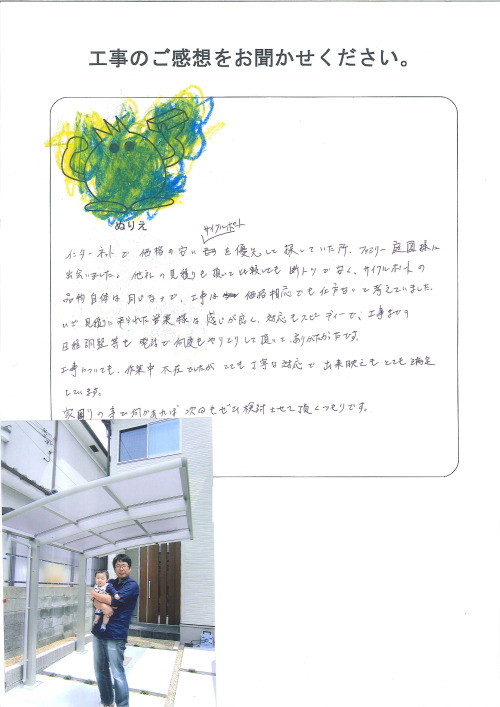 工事のご感想をお聞かせください。
ぬりえ
サイクルポート
インターネットで 価格の安い を優先して探していた所、ファミリー庭園様に
出会いました。他社の見積りも 比較しても 断トツで安く、サイクルポートの
品物自体は同じなので、工事は 価格相応でも仕方ないと考えていました。
いざ見積に来られた営業様は感じが良く、対応もスピーディーで、工事までの
日程調整等も 電話で何度もやりとりして頂いて、ありがたかったです。
工事についても、作業中 不在でしたが とても丁寧な対応で 出来映えもとても満足
しています。
家周りの事で何かあれば 次回もぜひ検討させて頂くつもりです。